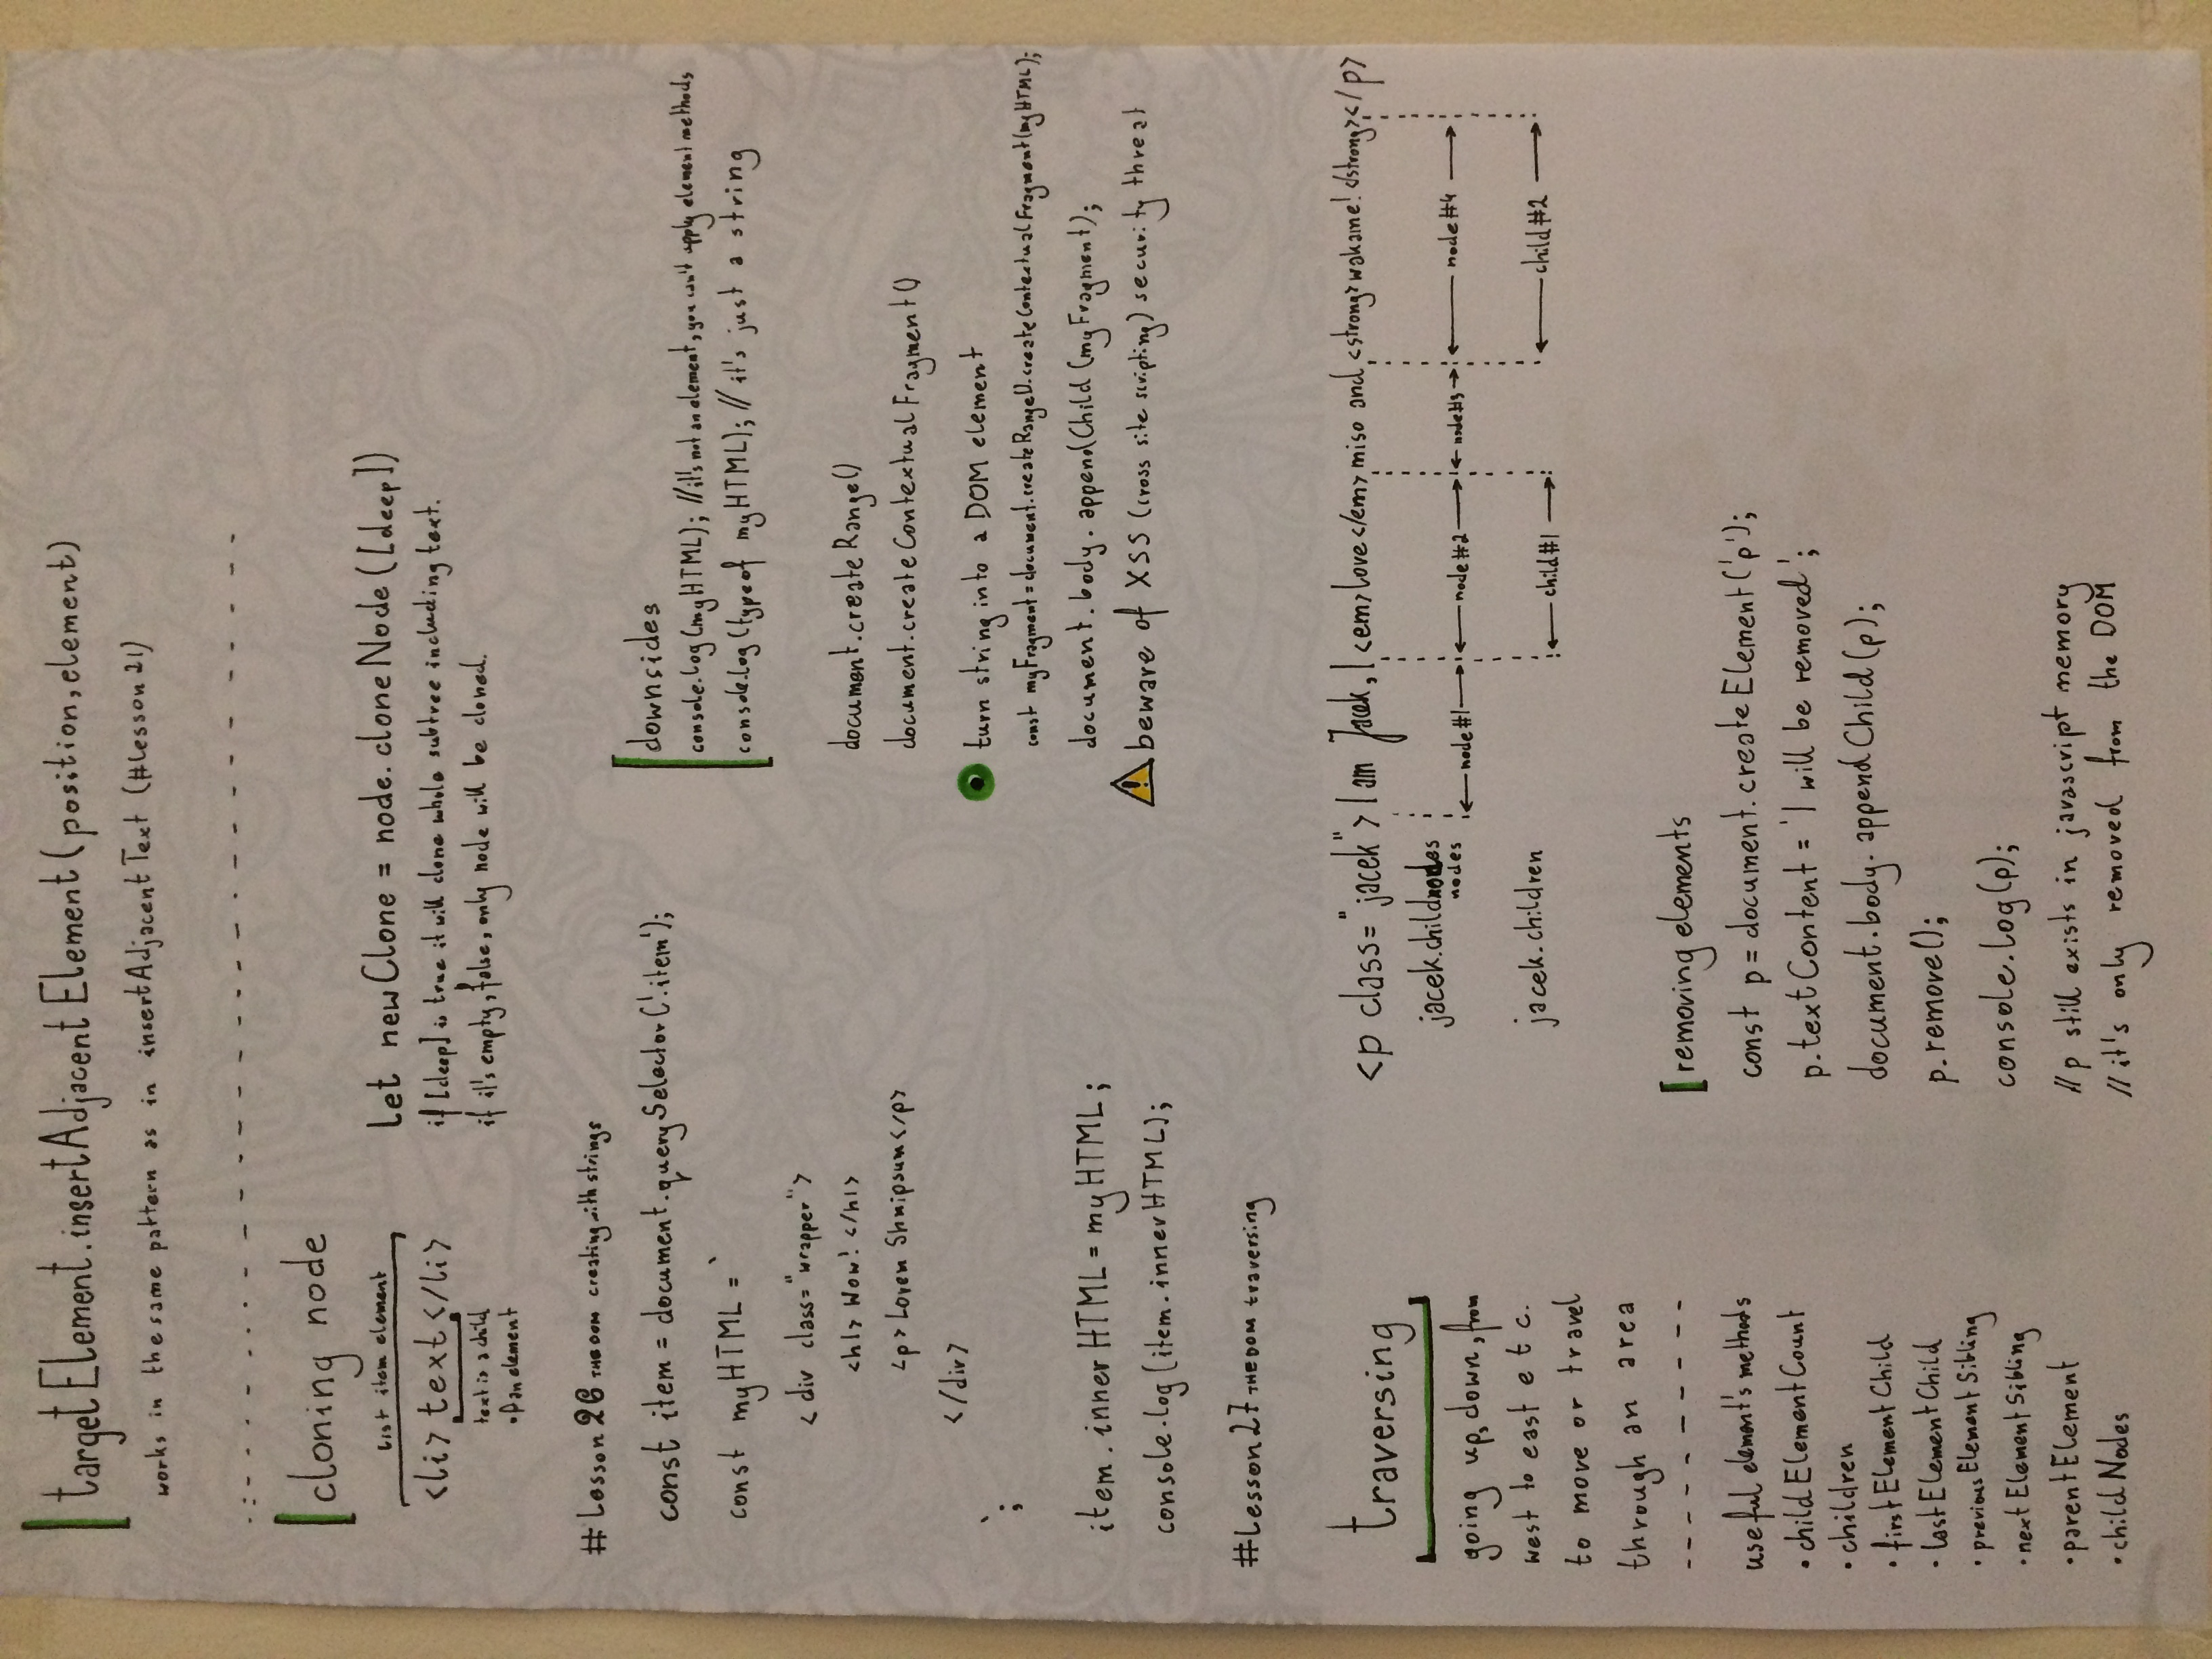 targetElement.insertAdjacentElement(position, element)
works in the same pattern as in insertAdjacentText (#Lesson 21)
cloning node
list item element
<li> text </li>
text is a child
of an element
let newClone = node.cloneNode([deep])
if [deep] is true it will clone whole subtree including text.
if it's empty, false, only node will be cloned.
# Lesson 26 THE DOM creating with strings
const item = document.querySelector('.item');
const myHTML = `
<div class="wrapper">
<h1> Wow! </h1>
<p> Lorem Shnipsum</p>
</div>
`;
item.innerHTML = myHTML;
console.log(item.innerHTML);
downsides
console.log(myHTML); //it's not an element, you can't apply element methods
console.log(typeof myHTML); // it's just a string
document.createRange()
document.createContextualFragment()
turn string into a DOM element
const myFragment = document.createRange().createContextualFragment(myHTML);
document.body.appendChild(myFragment);
beware of XSS (cross site scripting) security threat
#Lesson 27 THE DOM traversing
traversing
going up, down, from
west to east etc.
to move or travel
through an area
useful element's methods
• childElementCount
• children
• firstElementChild
• lastElementChild
• previousElementSibling
• nextElementSibling
• parentElement
• childNodes
<p class="jacek"> I am Jacek, I <em>love</em> miso and <strong>wakame!</strong></p>
jacek.childnodes
nodes
node#1 node#2 node#3 node#4
jacek.children
child#1 child#2
removing elements
const p = document.createElement('p');
p.textContent = 'I will be removed';
document.body.appendChild(p);
p.remove();
console.log(p);
// p still exists in javascript memory
// it's only removed from the DOM